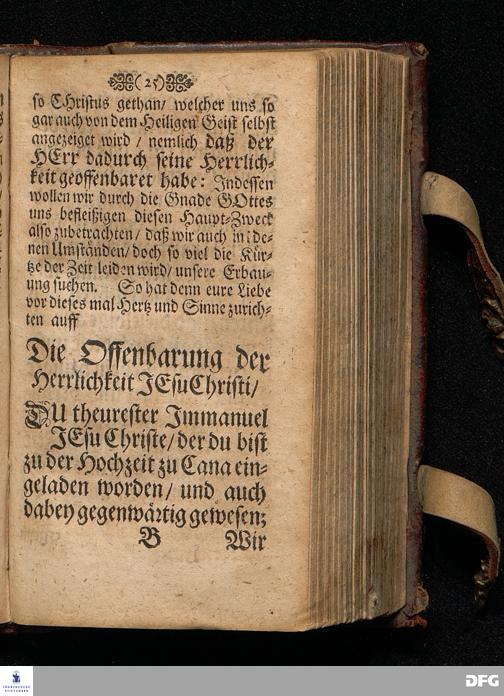 (25)
so CHristus gethan/ welcher uns so
gar auch von dem Heiligen Geist selbst
angezeiget wird / nemlich daß der
HErr dadurch seine Herrlich-
keit geoffenbaret habe: Indessen
wollen wir durch die Gnade GOttes
uns befleißigen diesen Haupt-Zweck
also zubetrachten/ daß wir auch in de-
nen Umständen/ doch so viel die Kür-
tze der Zeit leiden wird/ unsere Erbau-
ung suchen. So hat denn eure Liebe
vor dieses mal Hertz und Sinne zurich-
ten auff
Die Offenbarung der
Herrlichkeit JEsu Christi/
DU theurester Immanuel
JEsu Christe/ der du bist
zu der Hochzeit zu Cana ein-
geladen worden/ und auch
dabey gegenwärtig gewesen;
B Wir
FRANCKESCHE
STIFTUNGEN
DFG